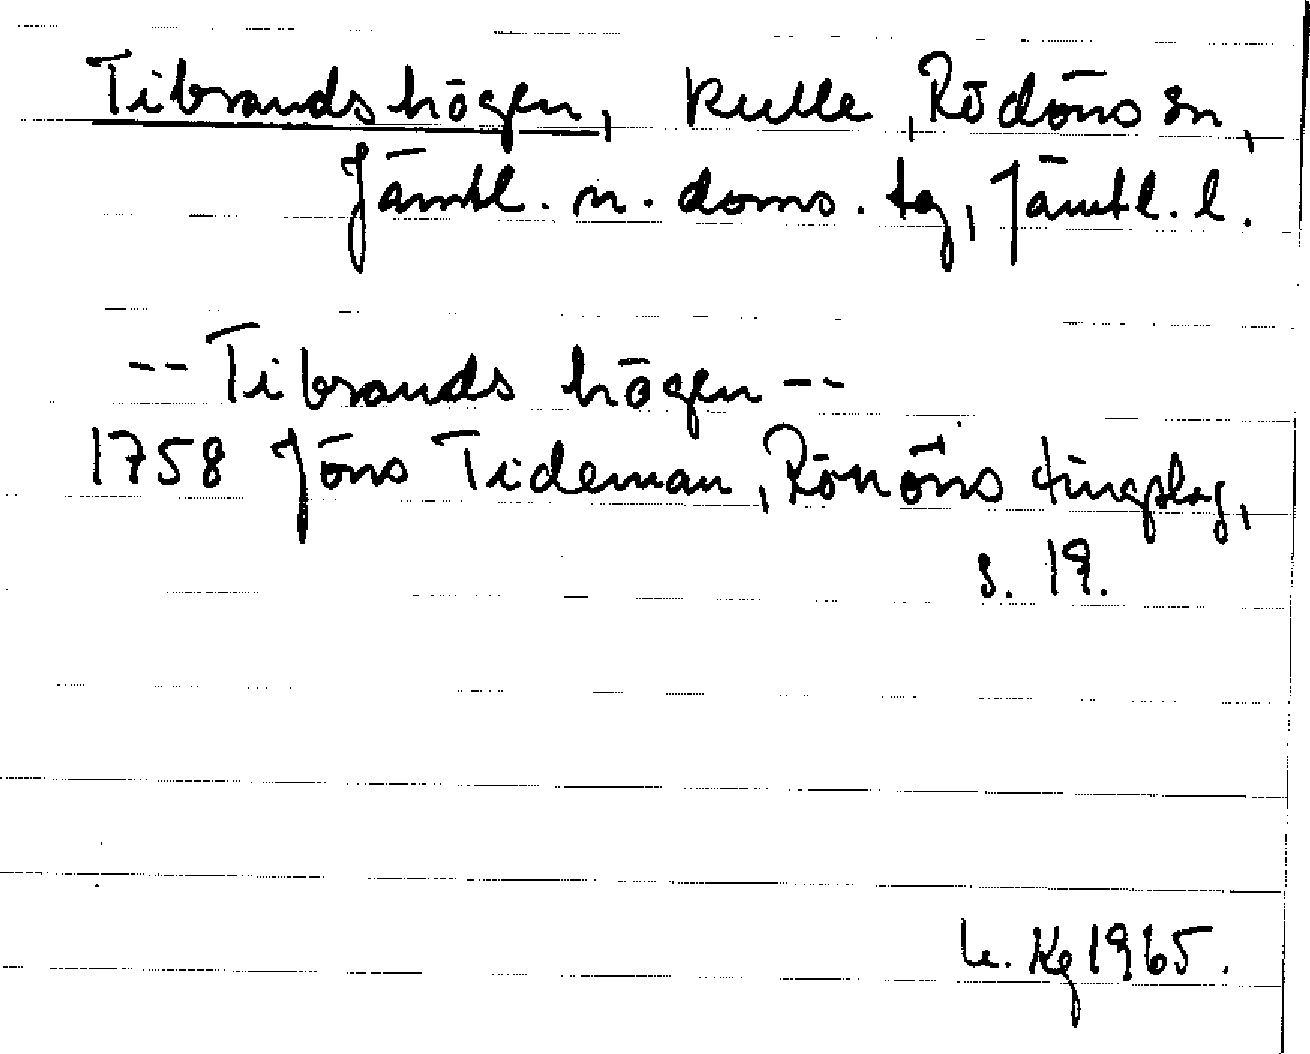 Tibrandshögen, kulle, Rödöns sn,
Jämtl. n. doms. tg, Jämtl. l.
-- Tibrands högen --
1758 Jöns Tideman, Rönöns tingslag,
s. 19.
Kg 1965.